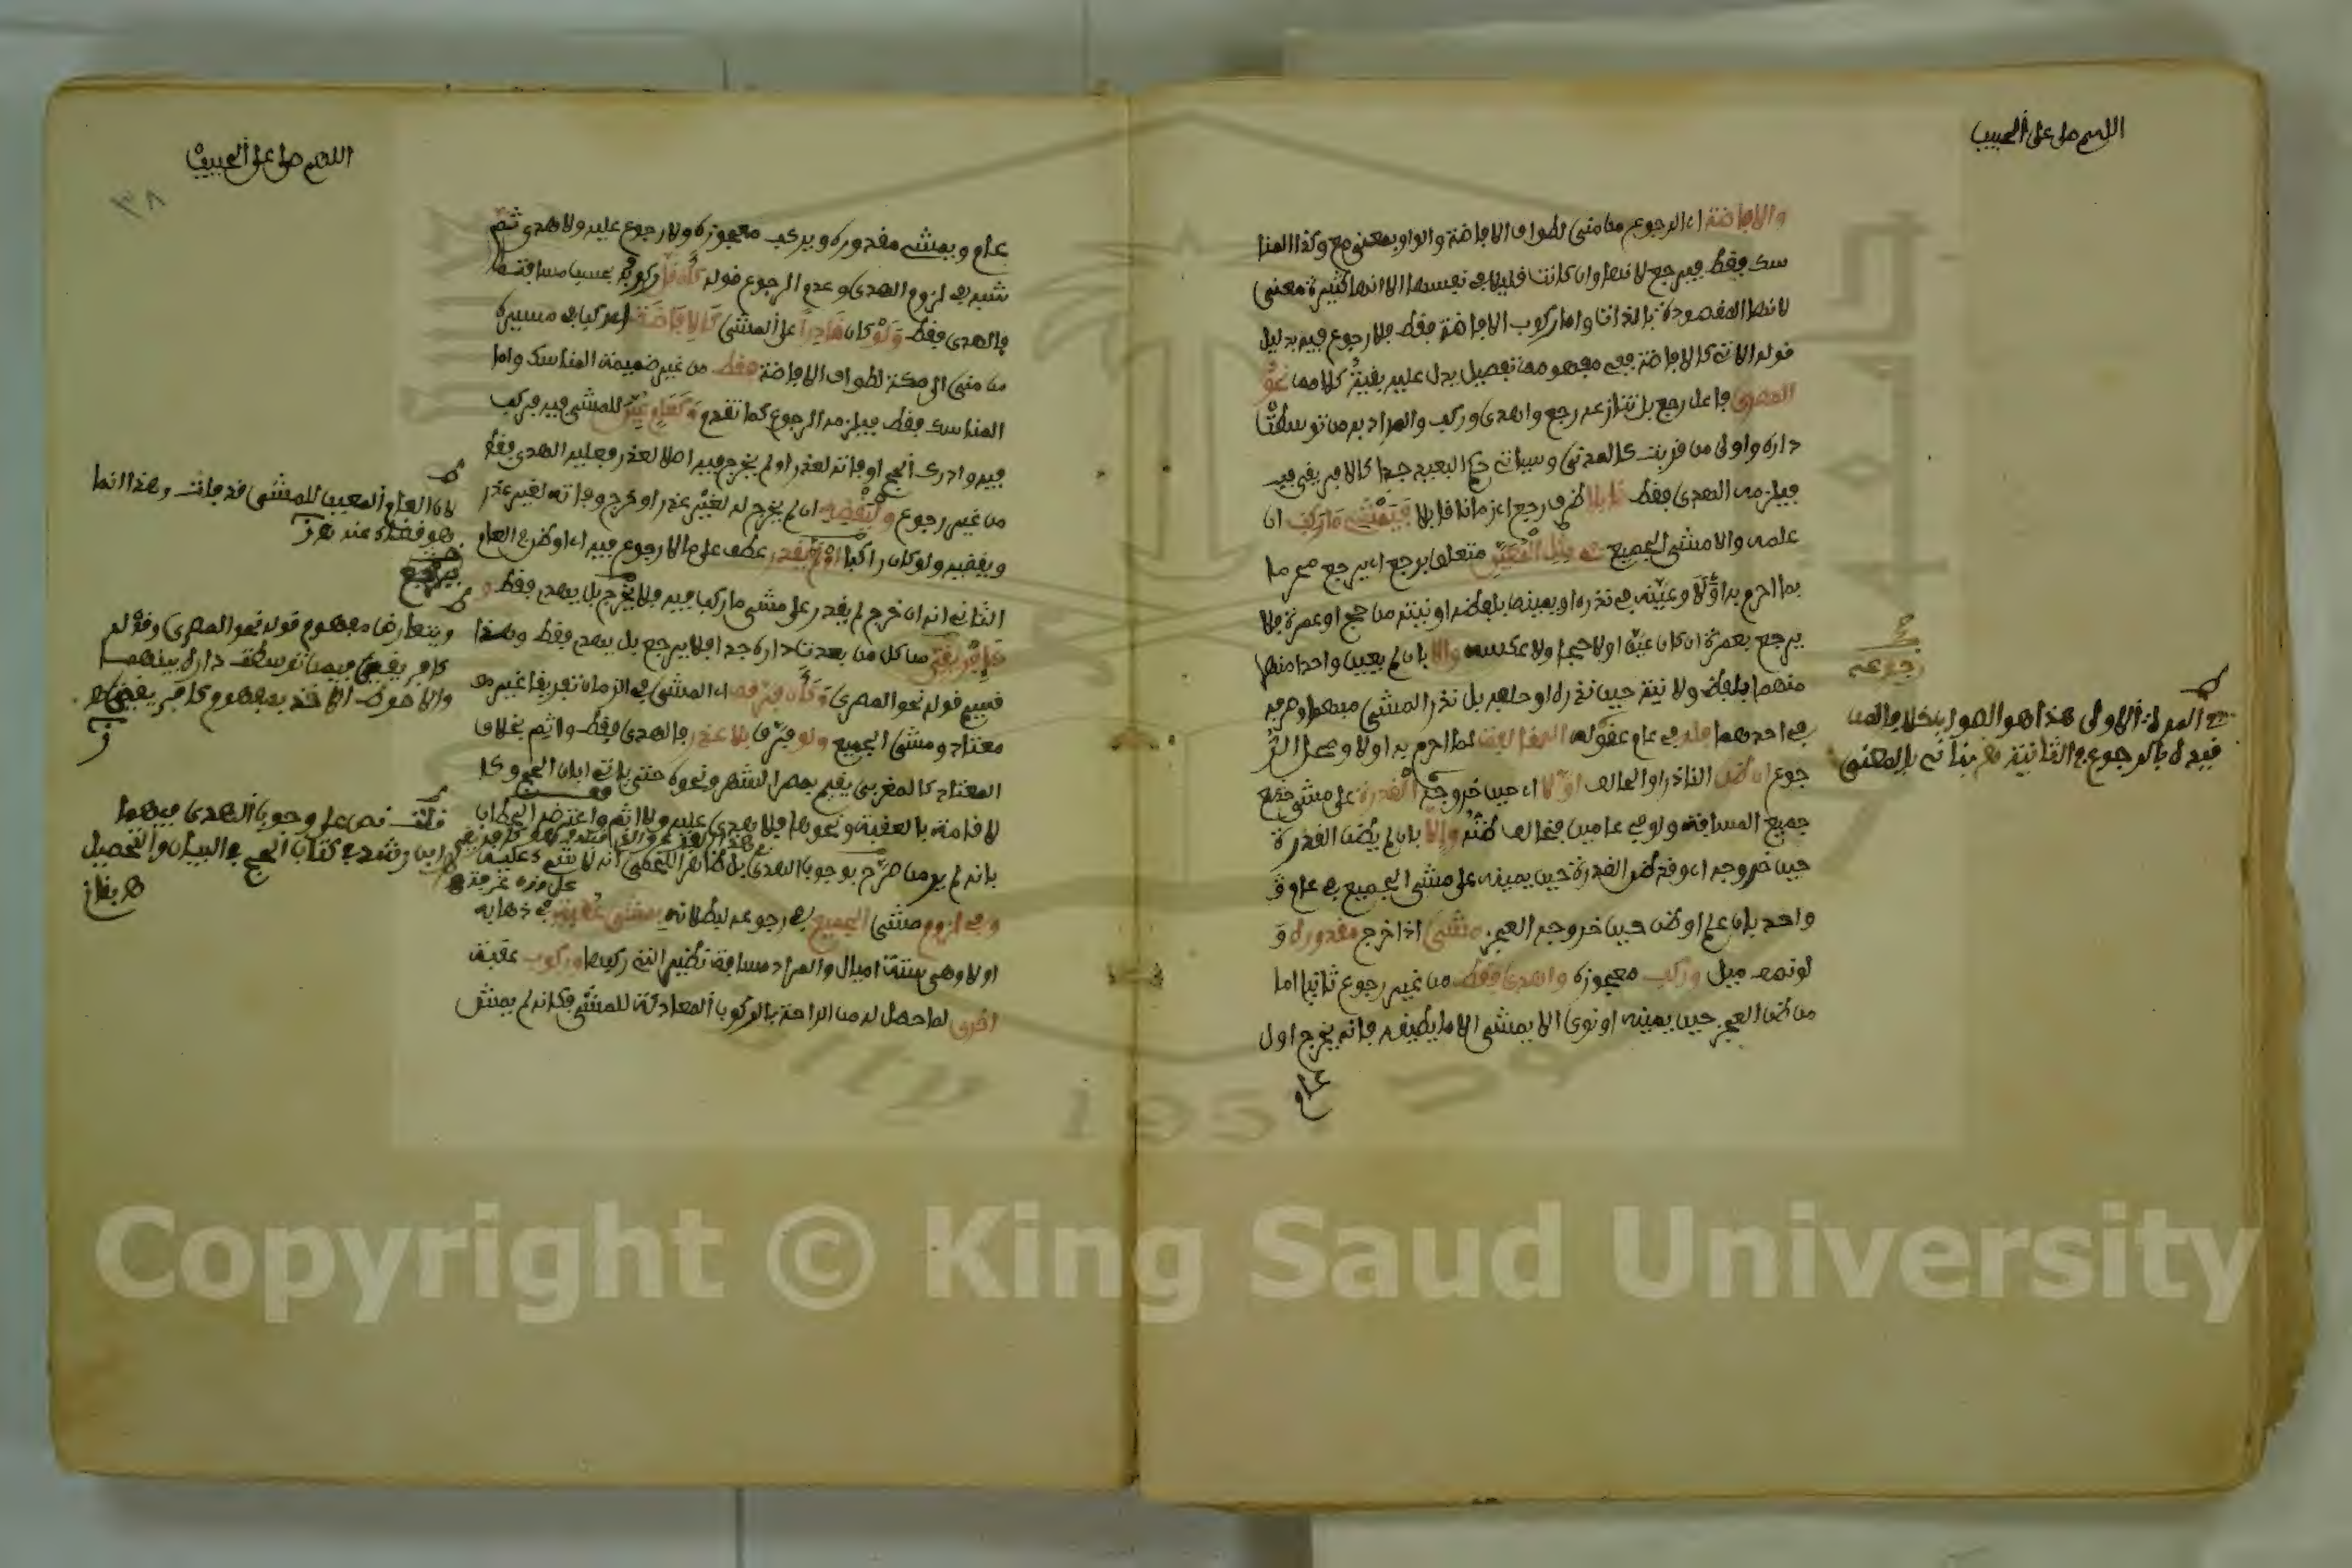 اللهم صل على الحبيب
والافاضة اي الرجوع من منى لطواف الافاضة والواو بمعنى مع وكذا المنا
سك فقط فيرجع لانها وان كانت قليلة في نفسها الا انها كثيرة معنى
لانها المقصودة بالذات واما ركوب الافاضة فقط فلا رجوع فيه بدليل
قوله الاتي كالافاضة ففي مفهومه تفصيل يدل عليه بقية كلامه نحو
المصري فاعل رجع بل تنازعه رجع واهدى وركب والمراد به من توسطت
داره واولى من قربت كالمدني وسياتي حكم البعيد جدا كالافريقي فيه
فيلزمه الهدي فقط قابلا ظرف رجع اي زمانا قابلا فيمشي ما ركب ان
علمه والا مشى الجميع في مثل المعين متعلق برجع اي يرجع محرما
بما احرم به اولا وعينه في نذره او يمينه بلفظه او نيته من حج او عمرة فلا
يرجع بعمرة ان كان عينه اولا حجا ولا عكسه والا بان لم يعين واحدا منها
منهما بلفظ ولا نية حين نذره او حلفه بل نذر المشي مبهما وصرفه
في احدهما فله في عام عوده المخالفة لما احرم به اولا ومحل الر
جوع ان ظن الناذر او الحالف اولا اي حين خروجه القدرة على مشي جميع
جميع المسافة ولو في عامين فخالف ظنه والا بان لم يظن القدرة
حين خروجه اي وقد ظن القدرة حين يمينه على مشي الجميع في عام و
واحد بان علم او ظن حين خروجه العجز مشى اذا خرج مقدوره و
لو نصف ميل وركب معجوزه واهدى فقط من غير رجوع ثانيا اما
من ظن العجز حين يمينه او نوى الا يمشي الا ما يطيقه فانه يخرج اول
عام
رجوعه
المدونة الاولى هذا هو الصواب
بالرجوع في الثانية بالمعنى
اللهم صل على الحبيب
٣٨
عام ويمشي مقدوره ويركب معجوزه ولا رجوع عليه ولا هدي ثم
شبه في لزوم الهدي وعدم الرجوع قوله كان قل ركوبه بحسب مسافته
فالهدي فقط ولو كان قادرا على المشي كالافاضة اي ركبا في مسيره
من منى الى مكة لطواف الافاضة فقط من غير ضميمة المناسك واما
المناسك فقط فيلزمه الرجوع كما تقدم وكعام عين للمشي فيه فركب
فيه وادرك الحج او فاته لعذر او لم يخرج فيه اصلا لعذر فعليه الهدي فقط
من غير رجوع وليقضه ان لم يخرج له لغير عذر او خرج وفاته لغير عذر
ويقضيه ولو كان راكبا او لم يقدر عطف على ما لا رجوع فيه اي او ظن في العام
الثاني انه ان خرج لم يقدر على مشي ما ركب فيه فلا يخرج بل يهدي فقط و
كافريقي من كل من بعدت داره جدا فلا يرجع بل يهدي فقط وهذا
قسيم قوله نحو المصري وكان فرقه اي المشي في الزمان تفريقا غير مع
معتاد ومشى الجميع ولو فرق بلا عذر فالهدي فقط واثم بخلاف
المعتاد كالمغربي يقيم بمصر الشهر ونحوه حتى ياتي ابان الحج وكا
لاقامة بالعقبة ونحوها فلا هدي عليه ولا اثم واعترض الحطاب
بانه لم ير من صرح بوجوب الهدي بل ظاهر اللخمي انه لا شيء عليه
وفي لزوم مشي الجميع في رجوعه لبطلانه بمشي عقبة في ذهابه
اولا وهي ستة اميال والمراد مسافة نظير التي ركبها وركوب عقبة
اخرى لما حصل له من الراحة بالركوب المعادلة للمشي فكانه لم يمش
لان العام المعين للمشي قد فات وهذا انما
هو قضاء عنه
فيرجع
ويتعارض مفهوم قوله نحو المصري وقوله
كافريقي فيمن توسطت داره بينهما
والاحوط الاخذ بمفهوم كافريقي
قلت نص على وجوب الهدي فيهما
ابن رشد في كتاب الحج في البيان والتحصيل
Copyright © King Saud University